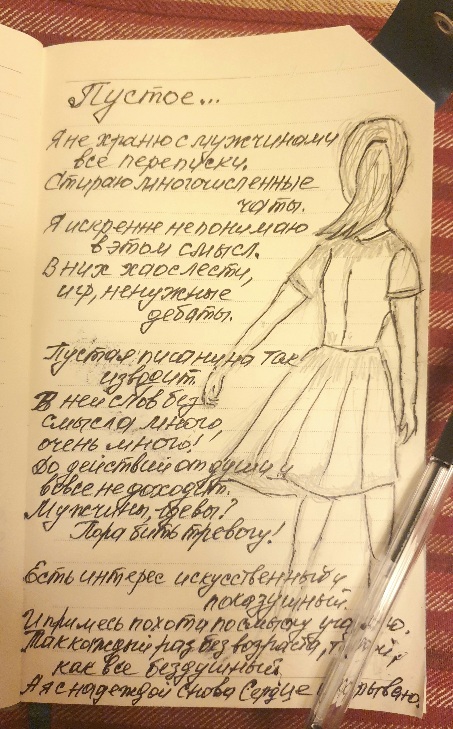 Пустое...
Я не храню с мужчинами
все переписки.
Стираю многочисленные
чаты.
Я искренне не понимаю
в этом смысл.
В них хаос лести,
игр, ненужные
дебаты.
Пустая писанина так
изводит.
В ней слов без
смысла много,
очень много!
До действий от души
вовсе не доходит.
Мужчины, где вы?
Пора бить тревогу!
Есть интерес искусственный
показушный.
И примесь похоти по смыслу
Так каждый раз без возраста,
как все бездушный.
А я с надеждой снова Сердце